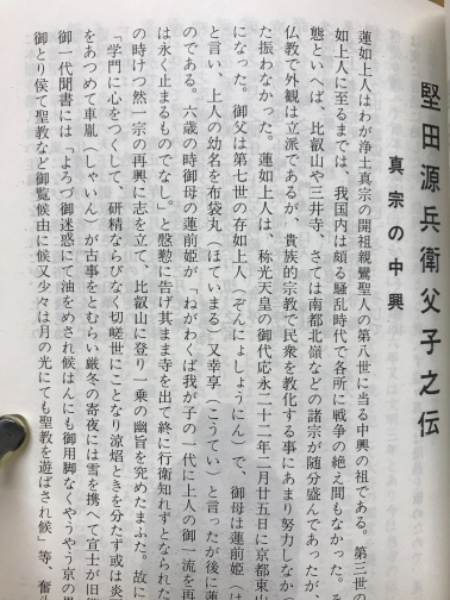 堅田源兵衛父子之伝
真宗の中興
蓮如上人はわが浄土真宗の開祖親鸞聖人の第八世に当る中興の祖である。第三世の
如上人に至るまでは、我国内は頗る騒乱時代で各所に戦争の絶え間もなかった。そ
態といへば、比叡山や三井寺、さては南都北嶺などの諸宗が随分盛んであったが、
仏教で外観は立派であるが、貴族的宗教で民衆を教化する事にあまり努力しなかっ
た振わなかった。蓮如上人は、称光天皇の御代応永二十二年二月廿五日に京都東山
になった。御父は第七世の存如上人（ぞんにょしょうにん）で、御母は蓮前姫（は
と言い、上人の幼名を布袋丸（ほていまる）又幸亭（こうてい）と言ったが後に蓮
のである。六歳の時御母の蓮前姫が「ねがわくば我が子の一代に上人の御一流を再
は永く止まるものでなし。」と慇懃に告げ其まま寺を出て終に行衛知れずとなられた
の時けつ然一宗の再興に志を立て、比叡山に登り一乗の幽旨を究めたまふた。故に
「学門に心をつくして、研精ならびなく切嗟世にことなり涼焰ときを分たず或は炎
をあつめて車胤（しゃいん）が古事をとむらい厳冬の寄夜には雪を携へて宣士が旧
御一代聞書には「よろづ御迷惑にて油をめされ候はんにも御用脚なくやうやう京の黒
御とり侯て聖教など御覧候由に候又少々は月の光にても聖教を遊ばされ候」等、奮